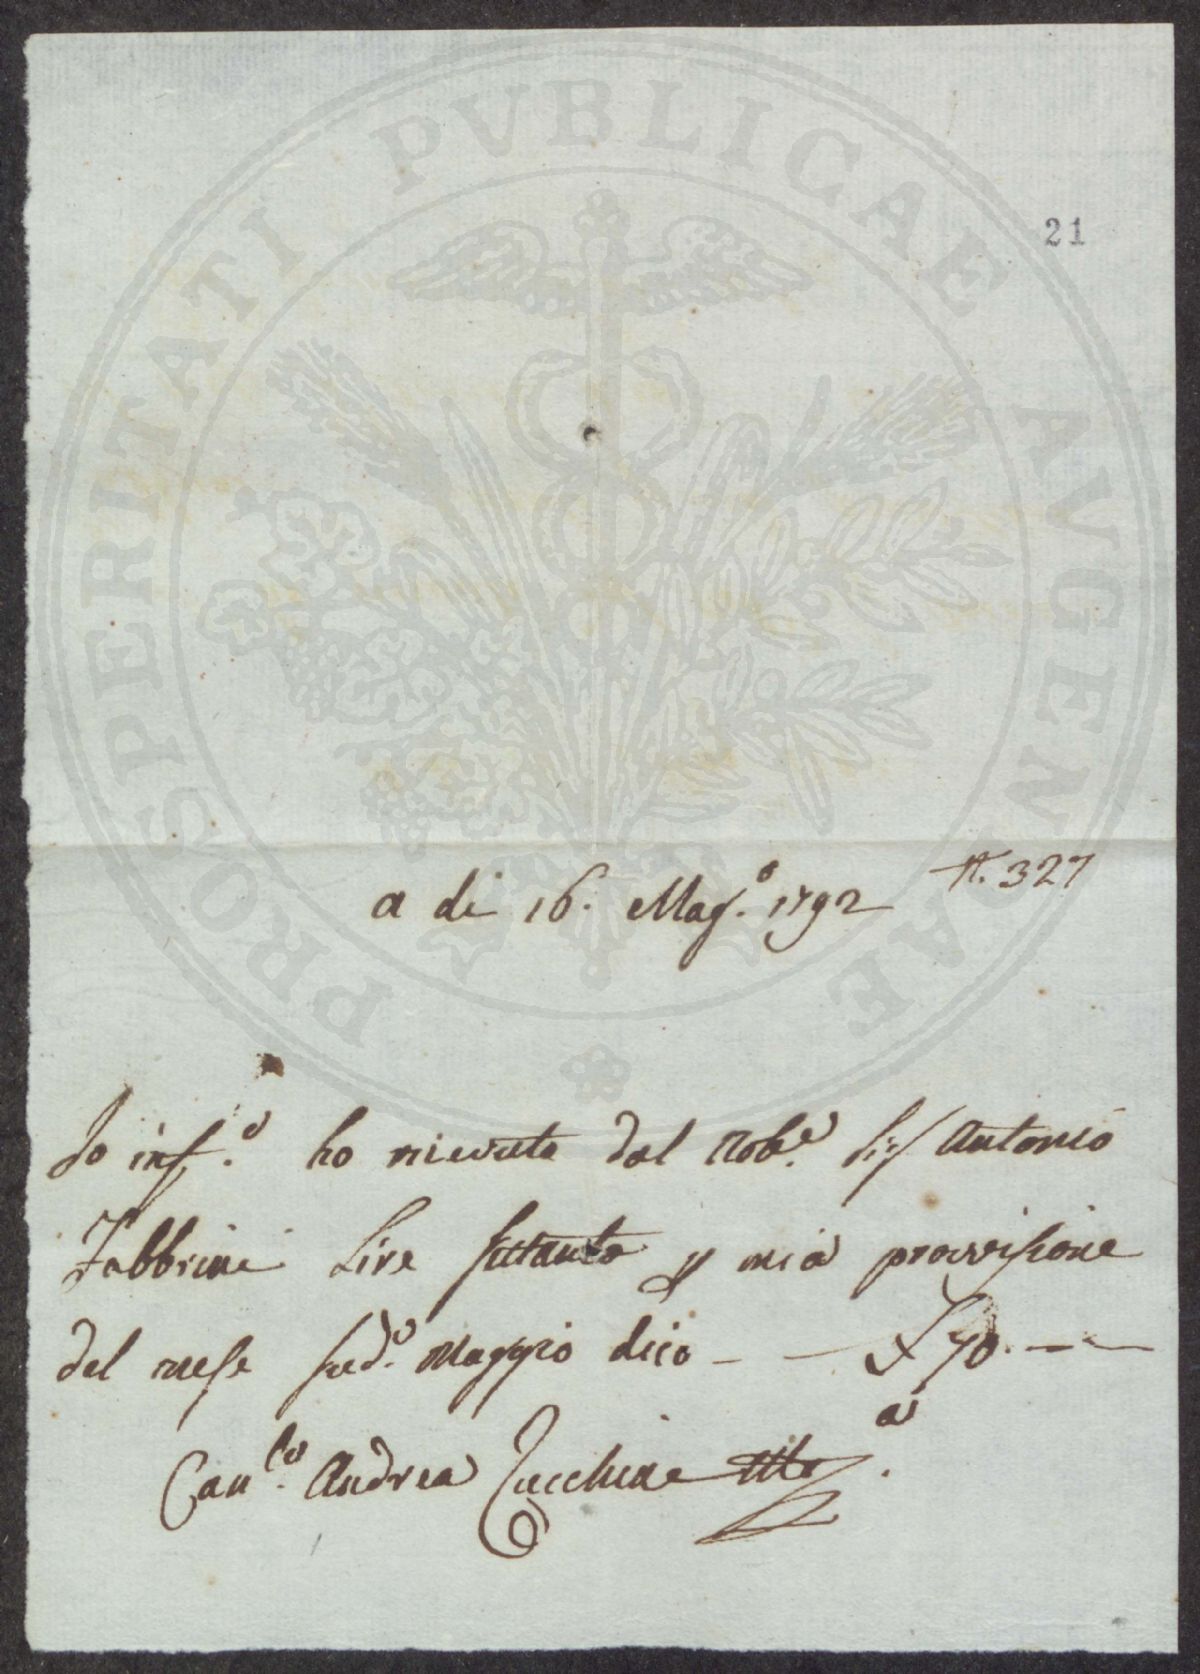 PROSPERITATI PVBLICAE AVGENDAE
21
N. 327
a di 16. Mag.º 1792
Io inf.º ho riceuto dal Nob.e Sig Antonio
Fabbrini Lire settanta p mia provvisione
del mese sud.º Maggio dico — — £ 70. — —
Can.co Andrea Zucchine